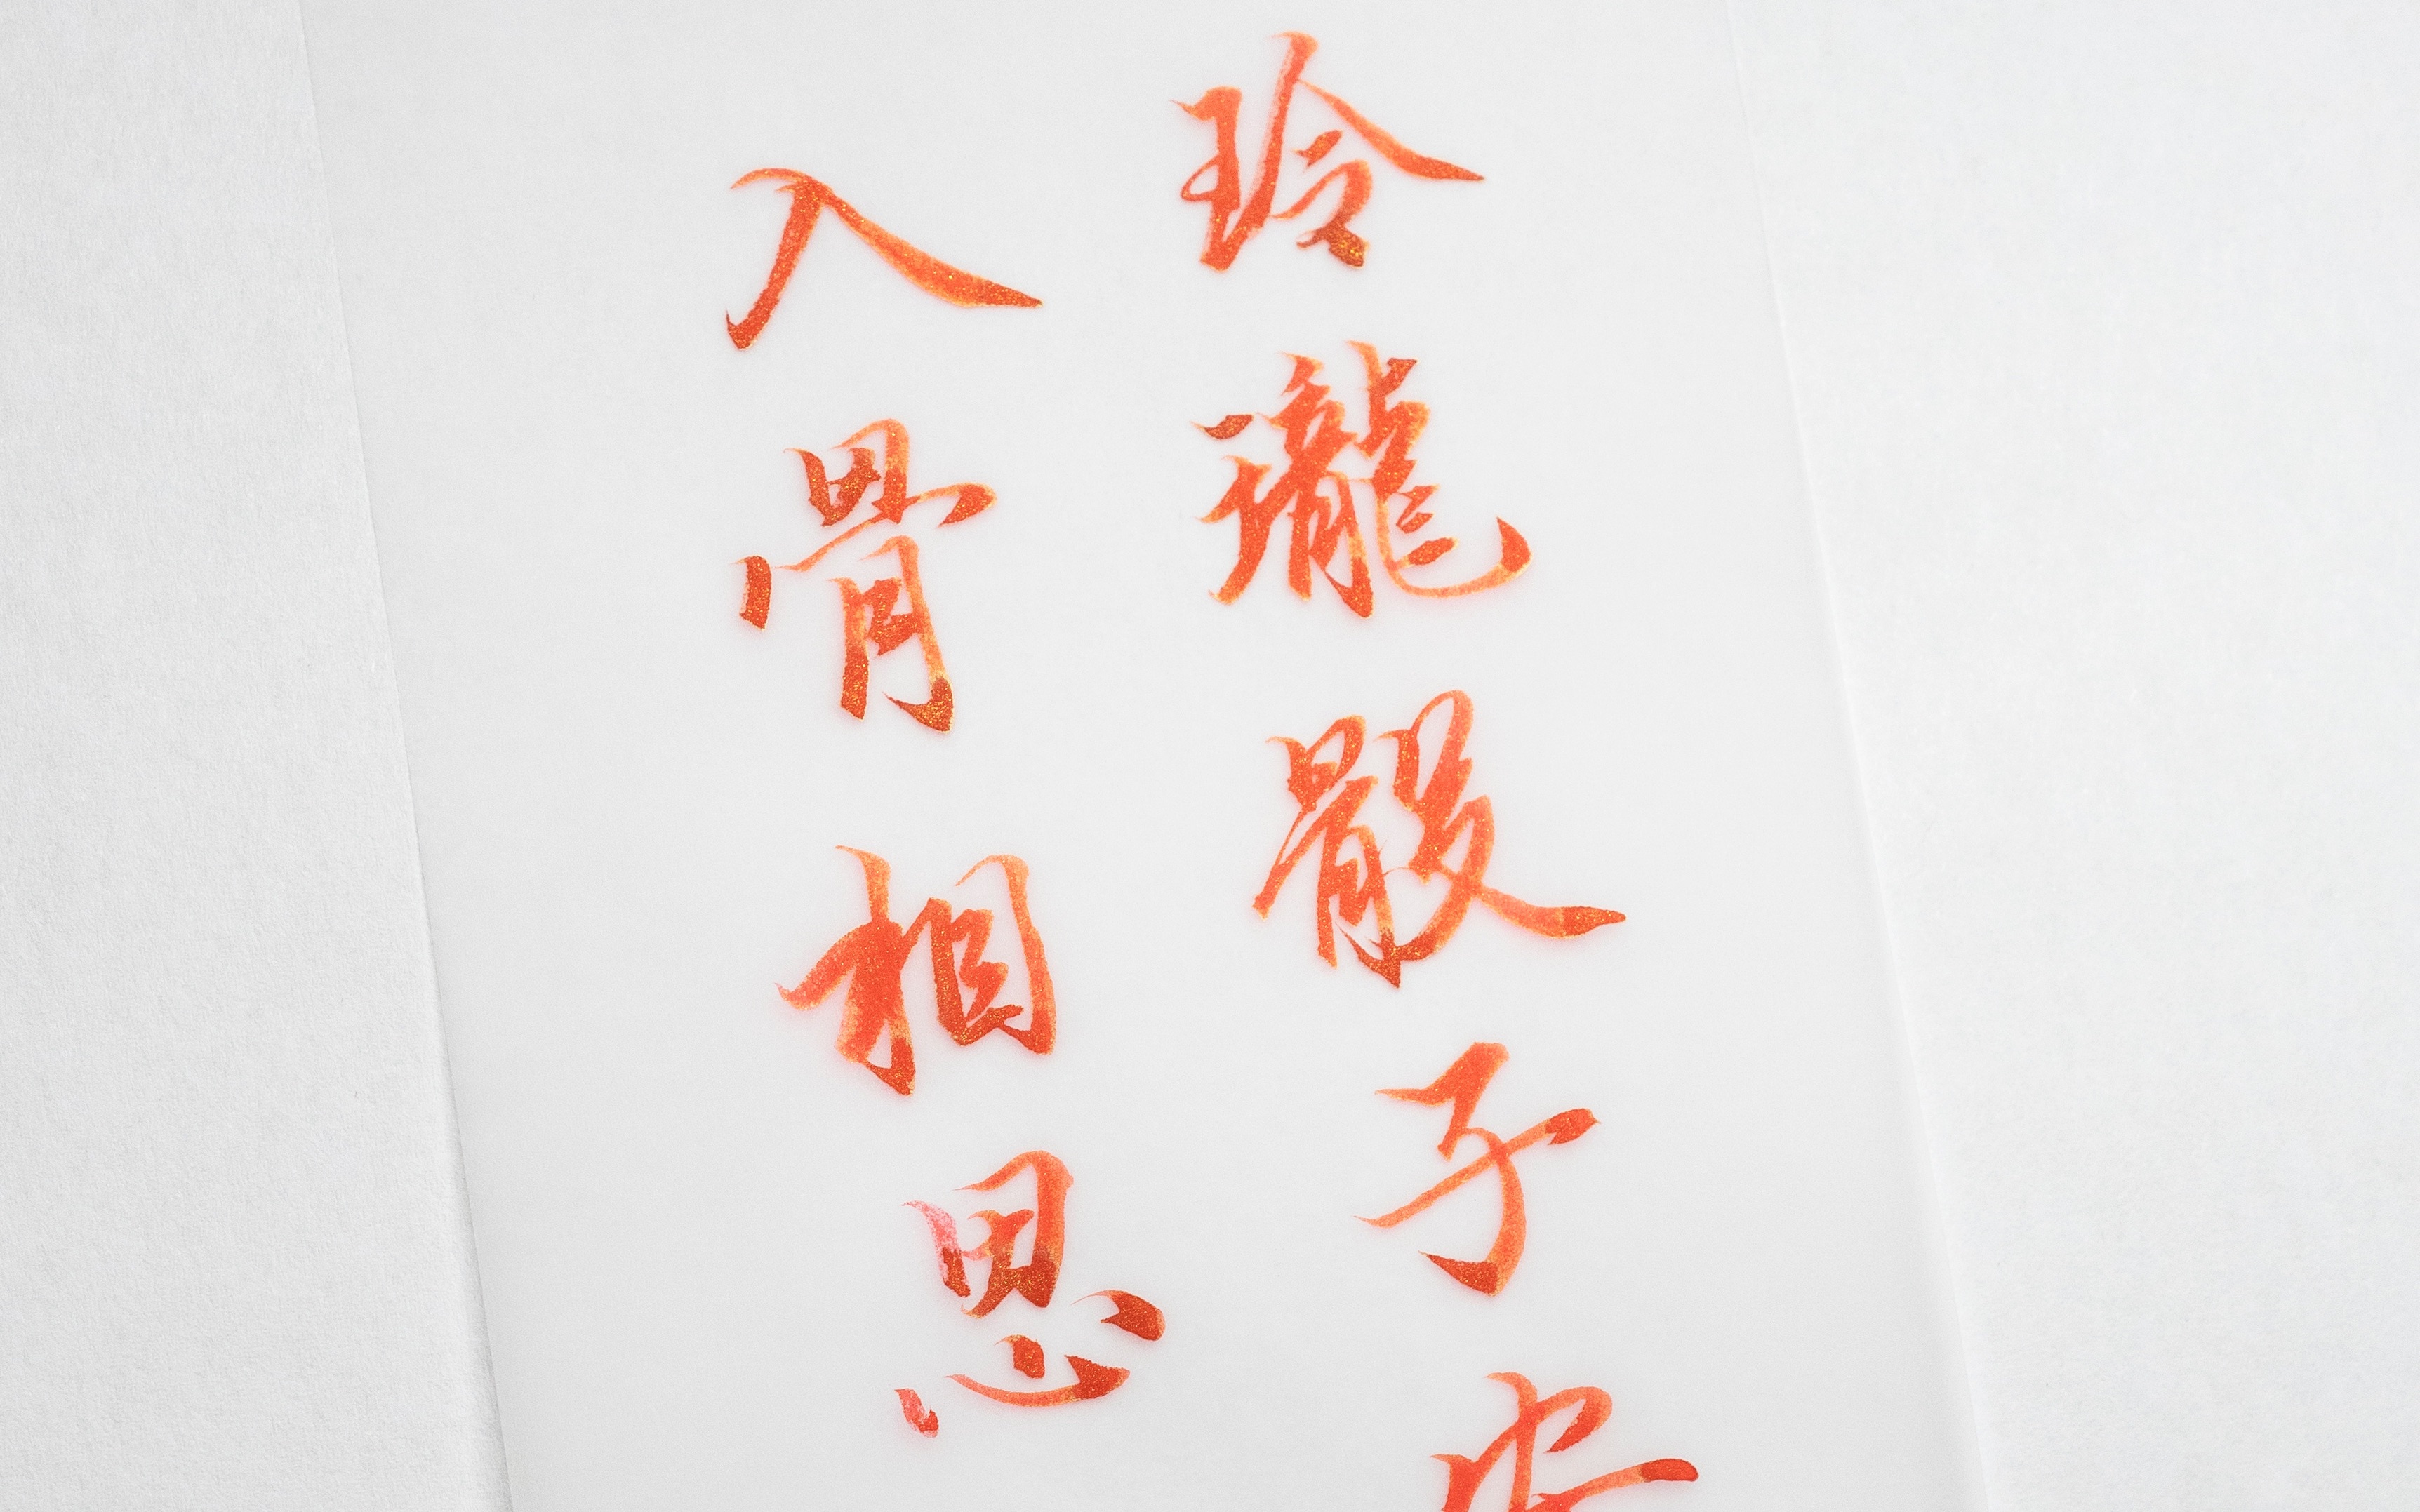 玲瓏骰子安
入骨相思